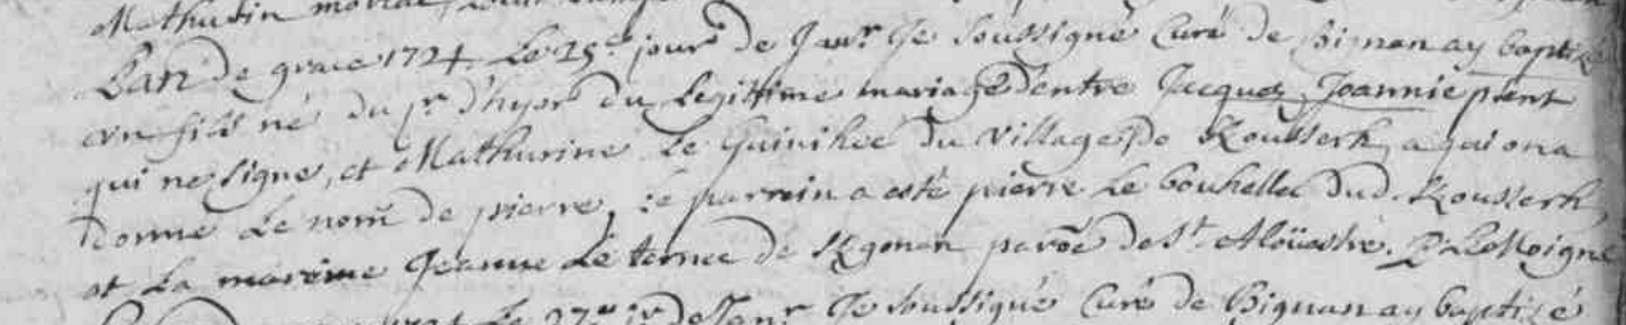 Mathurin
L'an de grace 1724 Le 25e jour de Janr. Je soussigné Curé de Bignan ay baptizé
un fils né du jr. d'hyer du Legittime mariage d'entre Jacques Joannic pnt
qui ne signe, et Mathurine Le Guinihec du village de Kousserh, a qui on a
donné Le nom de pierre, Le parrein a esté pierre Le bouhellec dud. Kousserh,
et La mareine Jeanne Le ternec de Kgonan paroe. de St. Aloüestre. P. LeMoigne
Le 27e jr. de Janr. Je soussigné Curé de Bignan ay baptizé